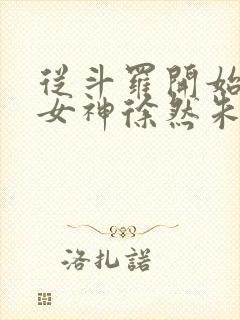 從斗羅開始
女神徐然朱
洛扎諾